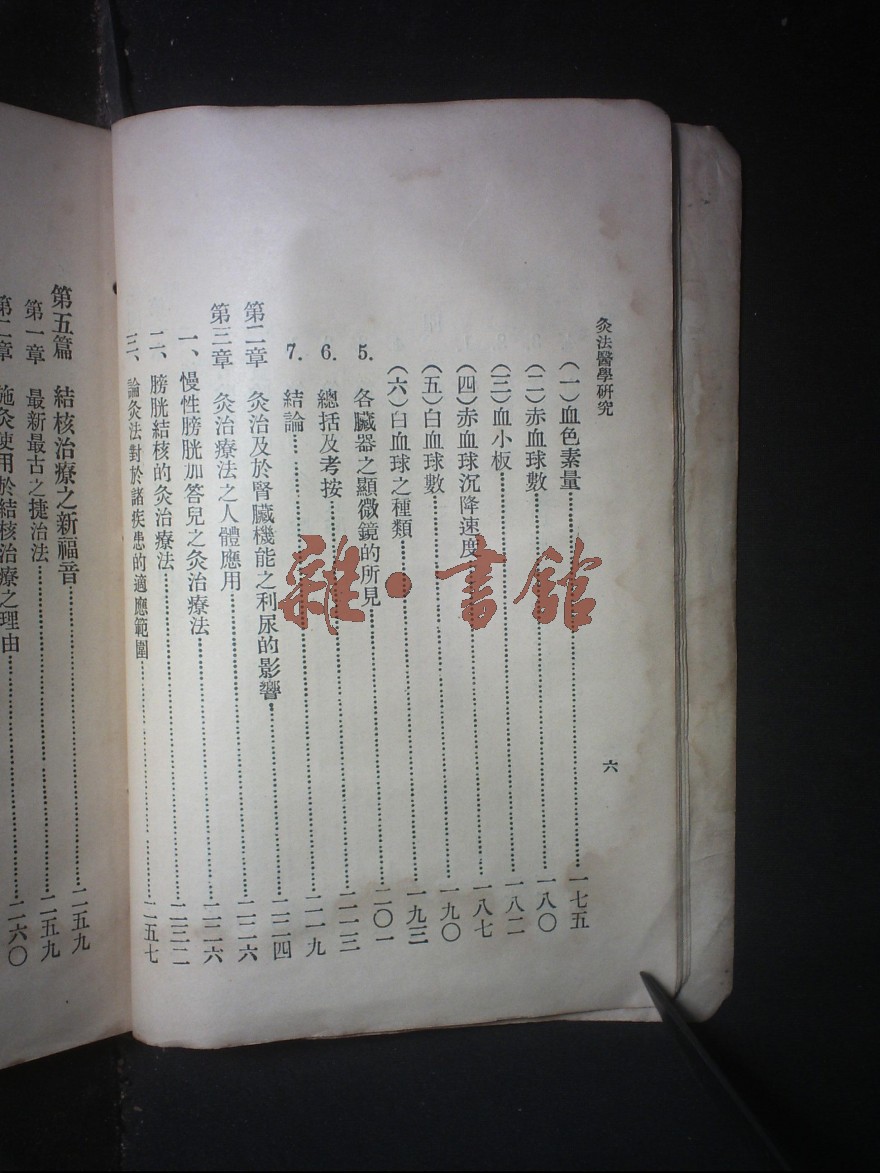 灸法醫學研究
六
(一)血色素量……一七五
(二)赤血球數……一八〇
(三)血小板……一八二
(四)赤血球沉降速度……一八七
(五)白血球數……一九〇
(六)白血球之種類……一九三
5. 各臟器之顯微鏡的所見……二〇一
6. 總括及考按……二一三
7. 結論……二一九
第二章 灸治及於腎臟機能之利尿的影響……二二四
第三章 灸治療法之人體應用……二二六
一、慢性膀胱加答兒之灸治療法……二二六
二、膀胱結核的灸治療法……二三二
三、論灸法對於諸疾患的適應範圍……二五七
第五篇 結核治療之新福音……二五九
第一章 最新最古之捷治法……二五九
第二章 施灸使用於結核治療之理由……二六〇
雜·書館